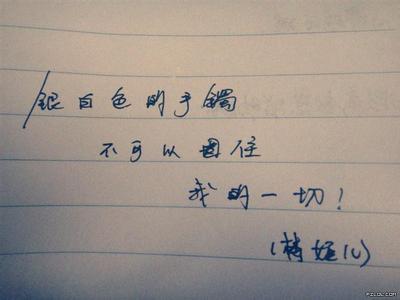 银白色的手镯
不可以困住
我的一切!
PZLOL.COM